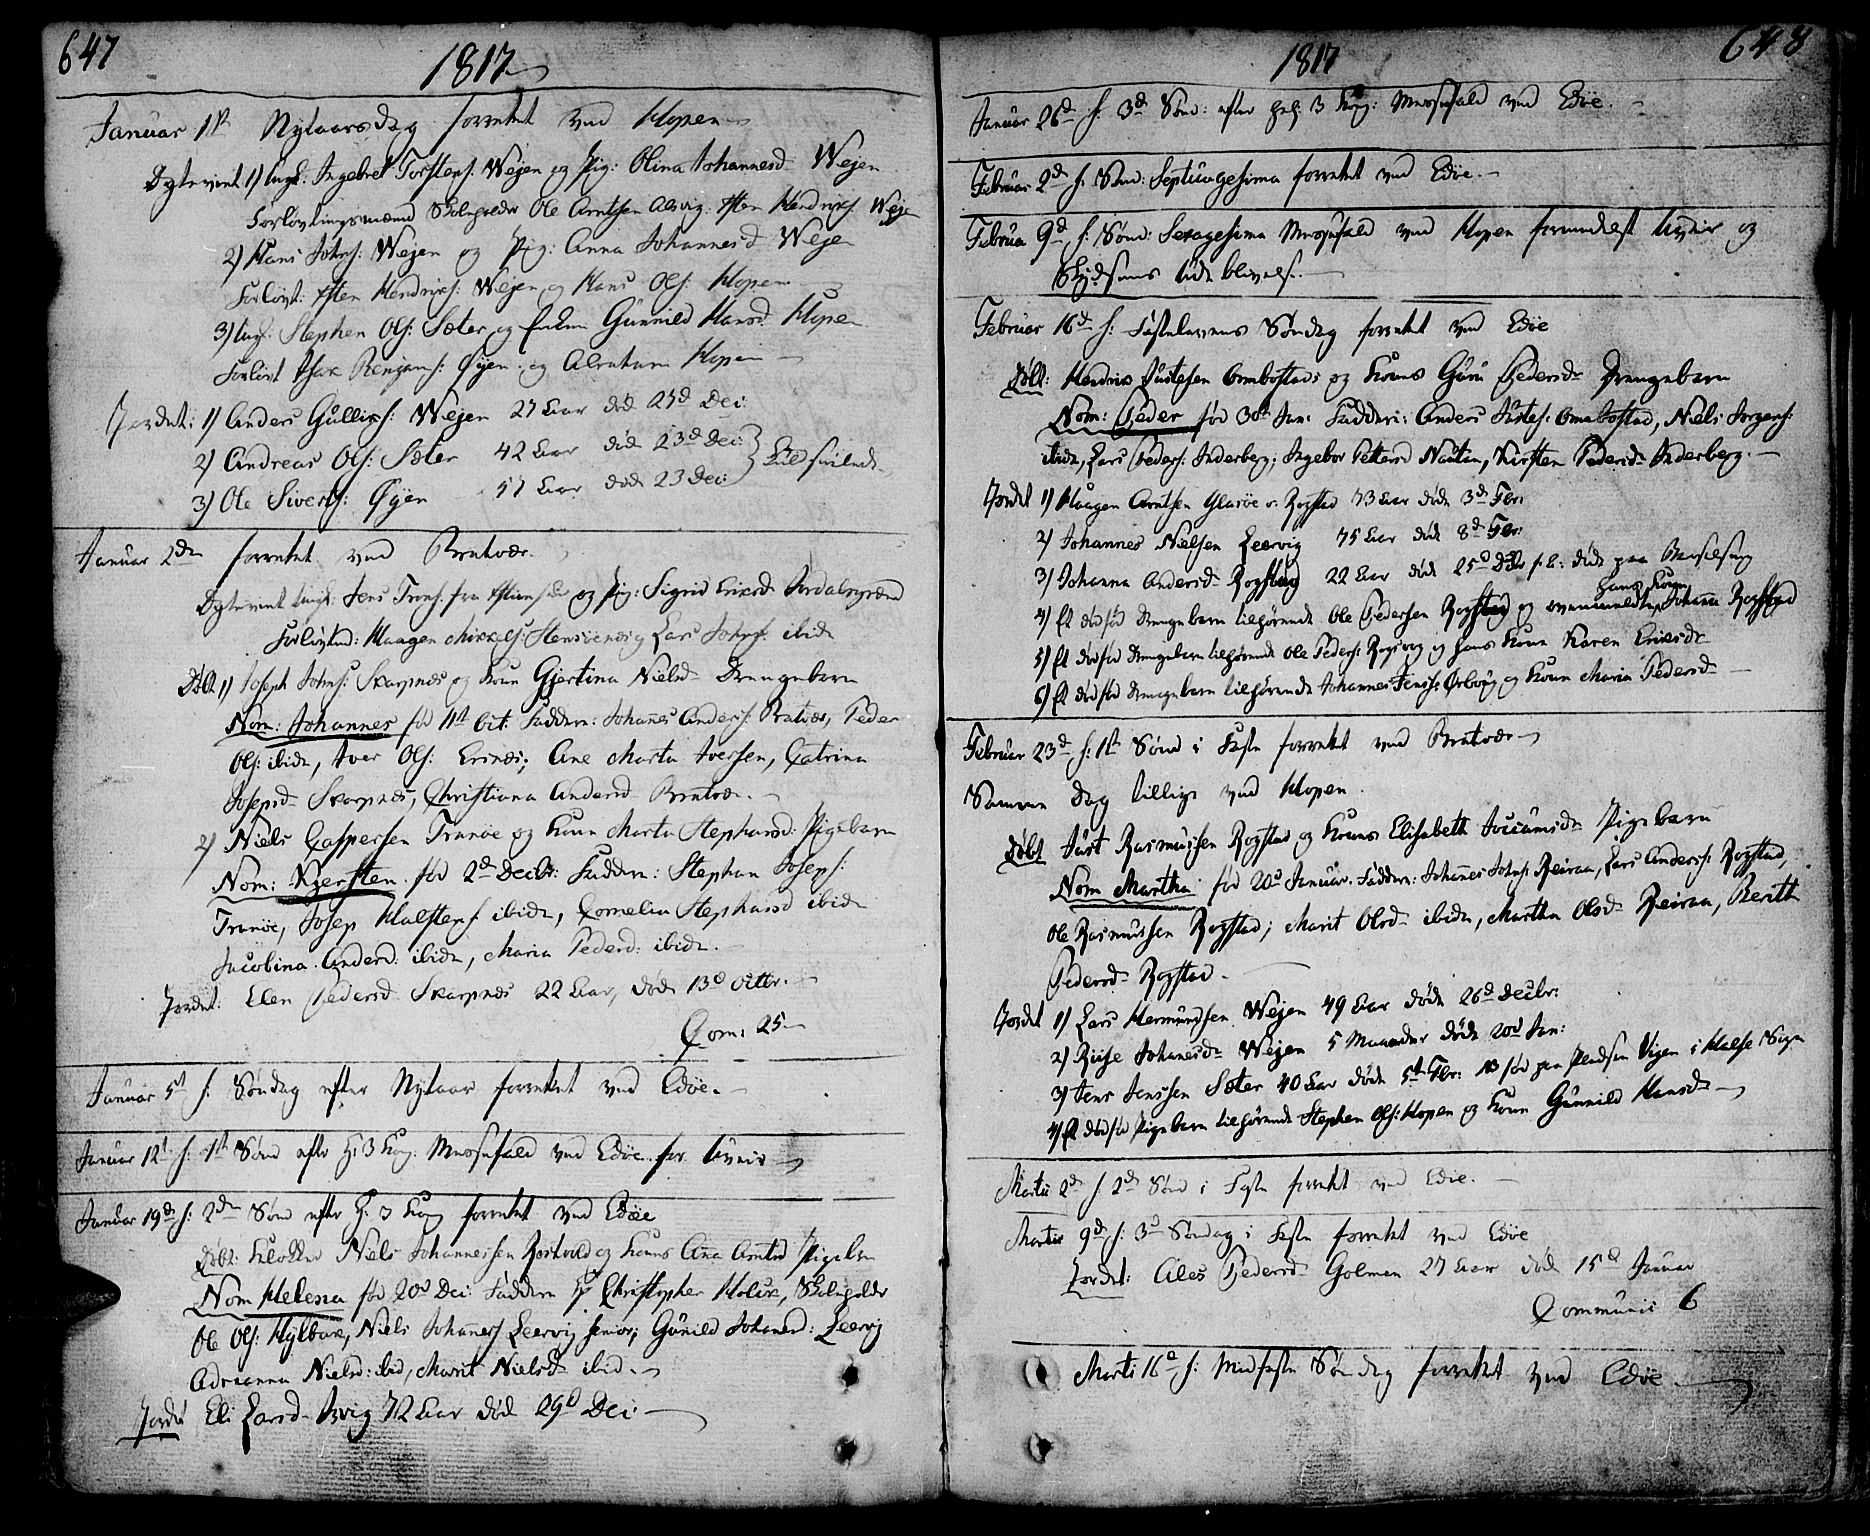 647
1817
Januar 1st Nytaarsdag forrettet ved Hopen
1) Ungk: Ingebret Torstens: Wejen og Pig: Olina Johannesd. Wejen
Forlovningsmænd Skoleholder Ole Arntsen Alsvig. Hendrichs: Wejen
2) Hans Johns: Wejen og Pig: Anna Johannesd Wejen
Forlovt: Hendrichs: Wejen og Hans Ols: Hopen
3) Ungk: Stephen Ols: Sæter og Enken Gunnild Hansd. Hopen
Forlovt Isak Benjams: Øyen og Abraham Hopen
Jordet: 1) Anders Gulliks: Wejen 27 Aar død 27d Dec:
2) Andreas Ols: Sæter 42 Aar død 23d Dec:
3) Ole Siverts: Øyen 57 Aar død 23 Dec:
Januar 2den forrettet ved Bratvær.
Jens Trons: fra og Pig: Sigrid Ericsd.
Forlovted: Haagen Mikkels: og Lars Johns: ibid
Døbt 1) Joseph Johns: Skarpnes og Kone Gjertina Nielsd Drengebarn
Nom: Johannes fød 11t Oct: Faddere: Johanes Anders: Bratvær, Peder
Ols: ibide, Iver Ols: Ersnes; Ane Marta Iversen, Catrina
Josepsd Skarpnes, Christiana Andersd Bratvær.
2) Niels Caspersen Tranøe og Kone Marta Stephansd: Pigebarn
Nom: Kjersten fød 2d Decbr: Faddere: Stephan Joseps:
Tranöe, Josep Halstens: ibide, Cornelia Stephansd ibide
Jacobina Andersd: ibide, Maria Pedersd: ibide.
Jordet: Elen Pedersd Skarpnes 22 Aar, døde 13d Octbr.
Com: 25
Januar 5t s: Søndag efter Nytaar forrettet ved Edöe.
Januar 12t s: 1st Sønd efter H: 3 Kong: Messefald ved Edöe for Uveir
Januar 19de s: 2den Sønd efter H: 3 Kong forrettet ved Edöe
Døbt: Klokker Niels Johannessen Rostvold og Kones Ana Arntsd Pigebn
Nom Helena fød 20d Dec: Faddere Hr Christopher Skoleholder
Ole Ols: Hylbak, Niels Johanes: Leervig senior; Gunild Johansd: Leervig
Adrianna Nielsd: ibid, Marit Nielsd ibid.
Jordet Eli Larsd. 72 Aar død 29d Dec:
648
1817
Januar 26d s: 3d Sønd: efter H: 3 Kong: Messefald ved Edöe.
Februar 2d s: Sønd: Septuagesima forrettet ved Edöe.
Februa 9d s: Sønd: Sexagesima Messefald ved Hopen formedelst Uveir og
Skydsens Udeblivelse.
Februar 16d s: Fastelavens Søndag forrettet ved Edöe
Døbt: Hendrik Justesen Ombostad og Kones Guru Pedersd. Drengebarn
Nom: Peder fød 30t Jan: Faddere: Anders Justes: Ombostad, Niels Jørgens:
ibide, Lars Peders: Inderberg; Ingebor Pettersd Nautan, Kirsten Pedersd Inderberg.
Jordet 1) Haagen Arntsen Glasöe v. Rogstad 73 Aar døde 3d Febr:
2) Johannes Nielsen Leervig 75 Aar døde 8d Febr:
3) Johanna Andersd Rogstad 22 Aar døde 25d Dec f. A: døde paa Barselseng
4) Et dødfød Drengebarn tilhørende Ole Pedersen Rogstad og ovenmeldte hans Kone Johanna Rogstad
5) Et dødfød Drengebarn tilhørende Ole Peders: og hans Kone Karen Ericsdr
6) Et dødfød Drengebarn tilhørende Johannes Jens: Ørbøg og Kone Maria Pedersd
Februar 23d s: 1st Sønd i Faste forrettet ved Bratvær
Samme Dag tillige ved Hopen.
Døbt Just Rasmussen Rogstad og Kones Elisabeth Joccumsd. Pigebarn
Nom Martha fød 20d Januar. Faddere: Johanes Johns: Reiraa, Lars Anders: Rogstad,
Ole Rasmussen Rogstad; Marit Olsd ibide, Martha Olsd Reiraa, Berith
Pedersd. Rogstad.
Jordet 1) Lars Hermundsen Wejen 49 Aar døde 26d Decbr:
2) Johanesd. Wejen 5 Maaneder døde 20d Jan:
3) Jens Jenssen Sæter 40 Aar døde 5t Febr: NB fød paa Pladsen Vigen i Halse Sogn
4) Et dødfød Pigebarn tilhørende Stephen Ols: Hopen og Kone Gunnild Hansd.
Martii 2d s: 2d Sønd i Faste forrettet ved Edöe.
Martii 9d s: 3d Søndag i Faste forrettet ved Edöe
Jordet: Ales Pedersd Golmen 27 Aar død 15d Januar
Communic 6
Marti 16d s: Midfaste Søndag forrettet ved Edöe.